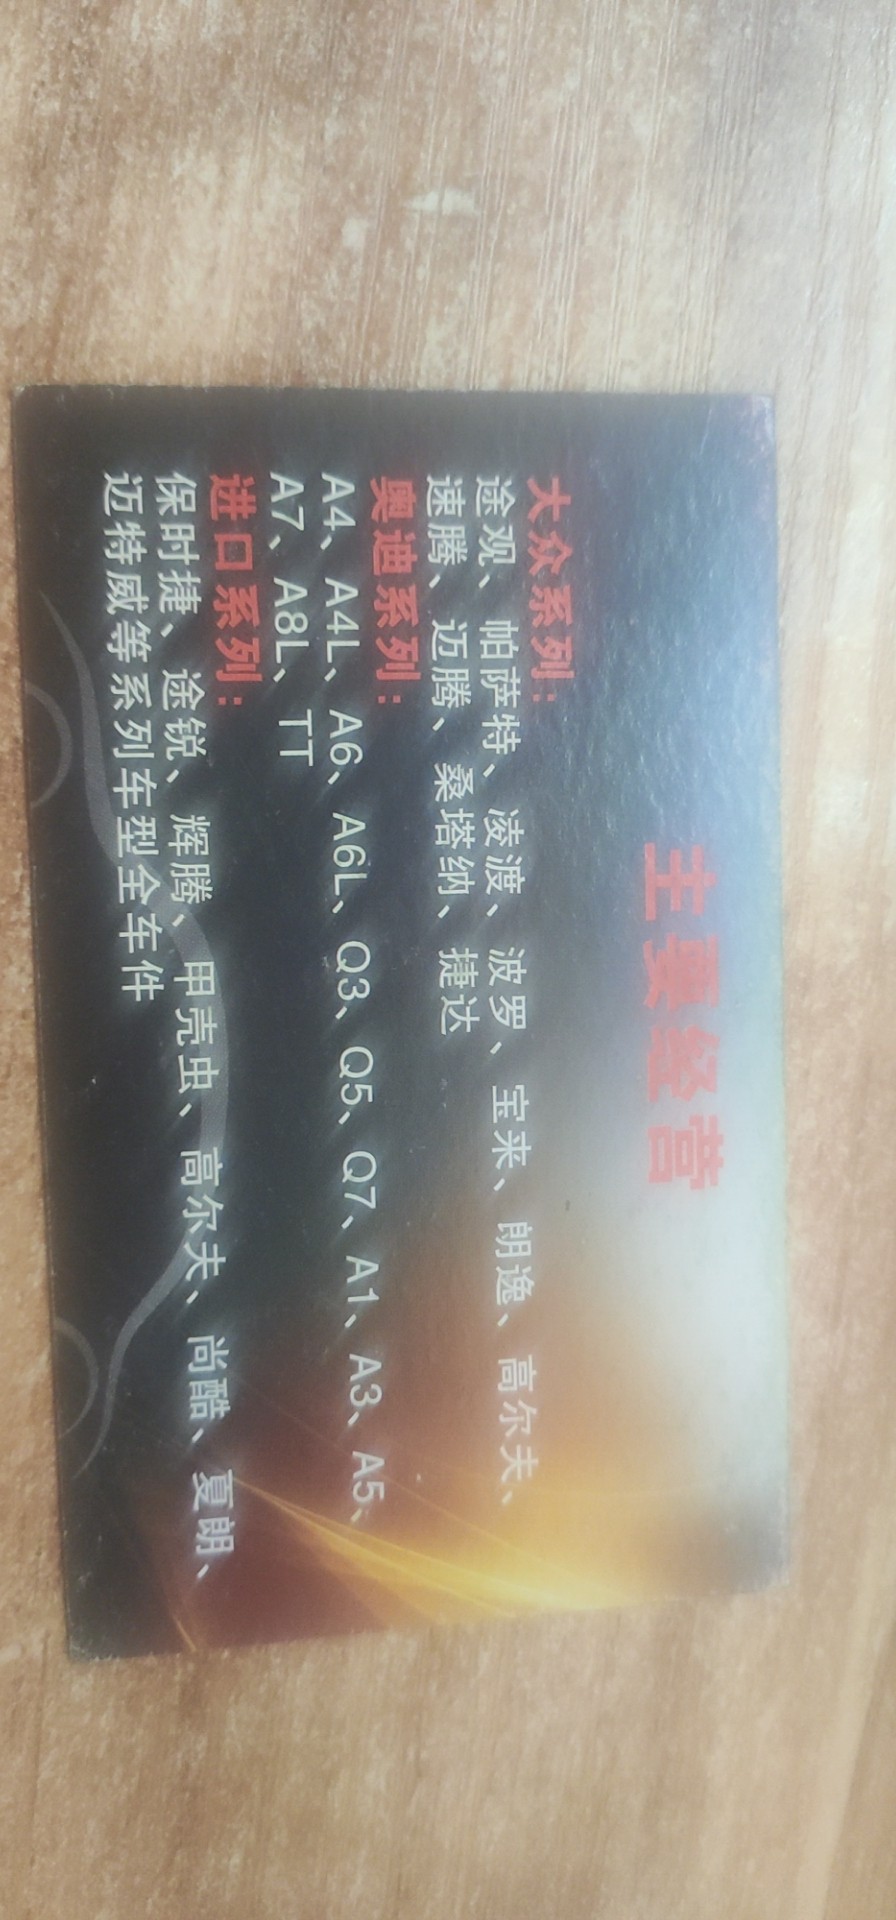 主要经营
大众系列：
途观、帕萨特、凌渡、波罗、宝来、朗逸、高尔夫、
速腾、迈腾、桑塔纳、捷达
奥迪系列：
A4、A4L、A6、A6L、Q3、Q5、Q7、A1、A3、A5、
A7、A8L、TT
进口系列：
保时捷、途锐、辉腾、甲壳虫、高尔夫、尚酷、夏朗、
迈特威等系列车型全车件